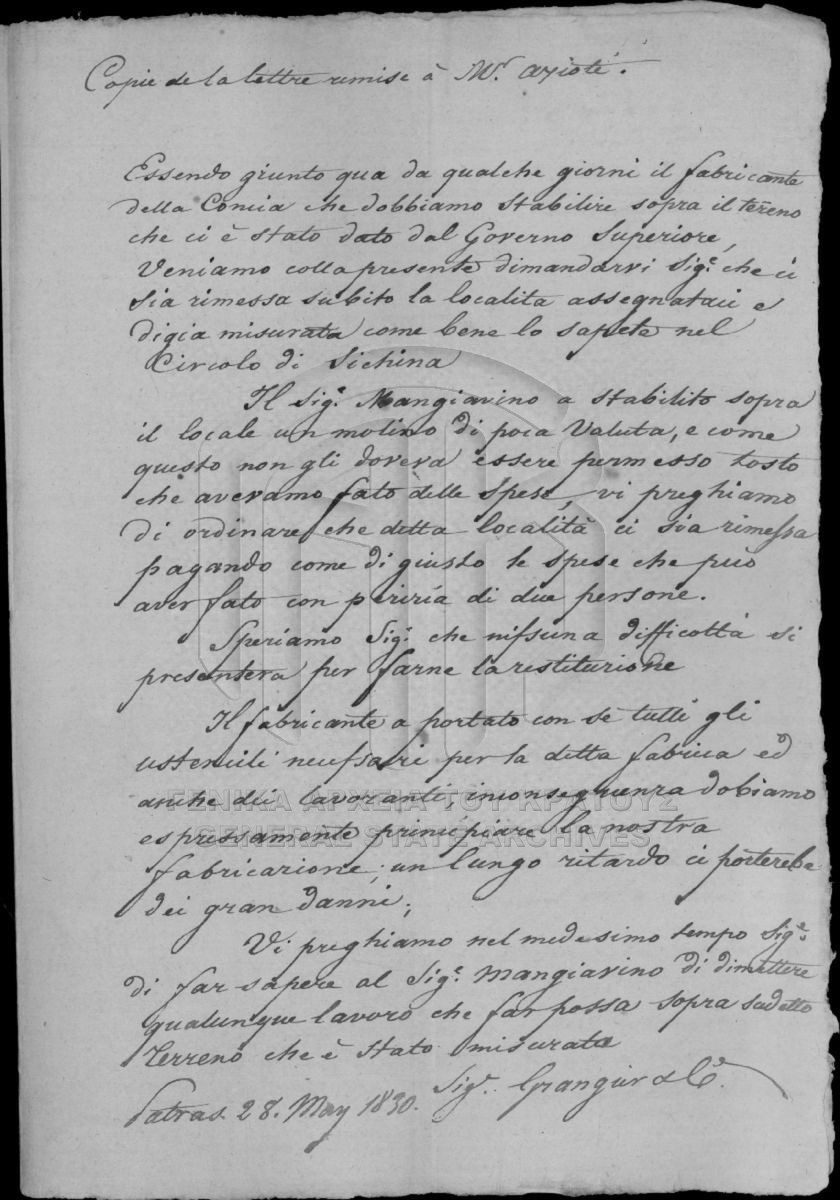 Copie de la lettre remise à Mr. Axioté.
Essendo giunto qua da qualche giorni il fabricante
della Concia che dobbiamo stabilire sopra il terreno
che ci è stato dato dal Governo Superiore,
Veniamo colla presente dimandarvi Sigr. che ci
sia rimessa subito la localita assegnataci e
digia misurata come bene lo sapete nel
Circolo di Sichina
Il Sigr. Mangiavino a stabilito sopra
il locale un molino di poca Valuta, e come
questo non gli doveva essere permesso tosto
che averamo fato delle spese, vi preghiamo
di ordinare che detta località ci sia rimessa
pagando come di giusto le spese che può
aver fato con periria di due persone.
Speriamo Sigr. che nissuna difficoltà si
presentera per farne la restiturione
Il fabricante a portato con sè tutti gli
ustencili necessari per la detta fabrica ed
anche dei lavoranti, inconseguenza dobiamo
espressamente principiare la nostra
fabricazione; un lungo ritardo ci porterebe
dei gran danni;
Vi preghiamo nel medesimo tempo Sigr.
di far sapere al Sigr. Mangiavino di dimettere
qualunque lavoro che far possa sopra sudetto
Terreno che è stato misurato
Sigr. & Co.
Patras 28. May 1830.
ΓΕΝΙΚΑ ΑΡΧΕΙΑ ΤΟΥ ΚΡΑΤΟΥΣ
GENERAL STATE ARCHIVES